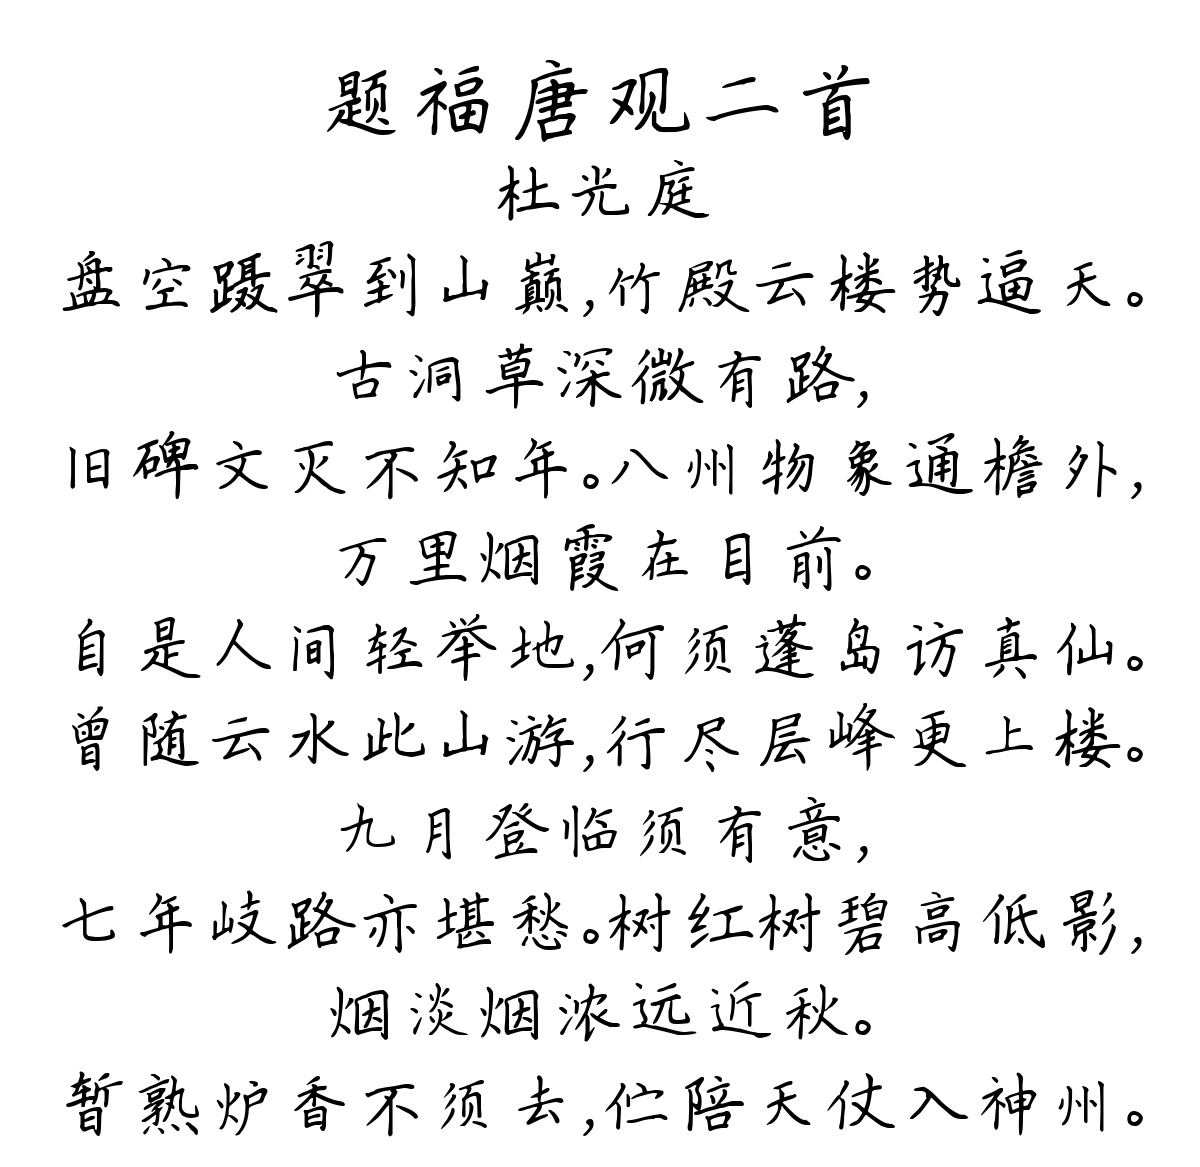 题福唐观二首
杜光庭
盘空蹑翠到山巅,竹殿云楼势逼天。
古洞草深微有路,
旧碑文灭不知年。八州物象通檐外,
万里烟霞在目前。
自是人间轻举地,何须蓬岛访真仙。
曾随云水此山游,行尽层峰更上楼。
九月登临须有意,
七年岐路亦堪愁。树红树碧高低影,
烟淡烟浓远近秋。
暂熟炉香不须去,伫陪天仗入神州。